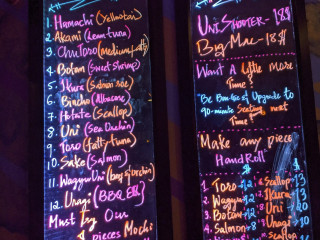 1. Hamachi (Yellowtail)
2. Akami (Lean tuna)
3. Chutoro (medium fatty)
4. Botan (Sweet shrimp)
5. Ikura (Salmon roe)
6. Bincho (Albacore)
7. Hotate (Scallop)
8. Uni (Sea Urchin)
9. Toro (Fatty tuna)
10. Sake (Salmon)
11. Wagyu Uni (
12. Unagi (BBQ Eel)
Must Try Our
pieces Mochi
Uni Shooter - 18$
Big Mac - 18$
Want A Little More
Time?
Upgrade to
90-minute Seating next
Time!
Make any piece
Hand Roll!
1. Toro 12
2. Wagyu 12
3. Botan
4. Salmon 8
Scallop
Ikura 13
Uni
Unagi 10